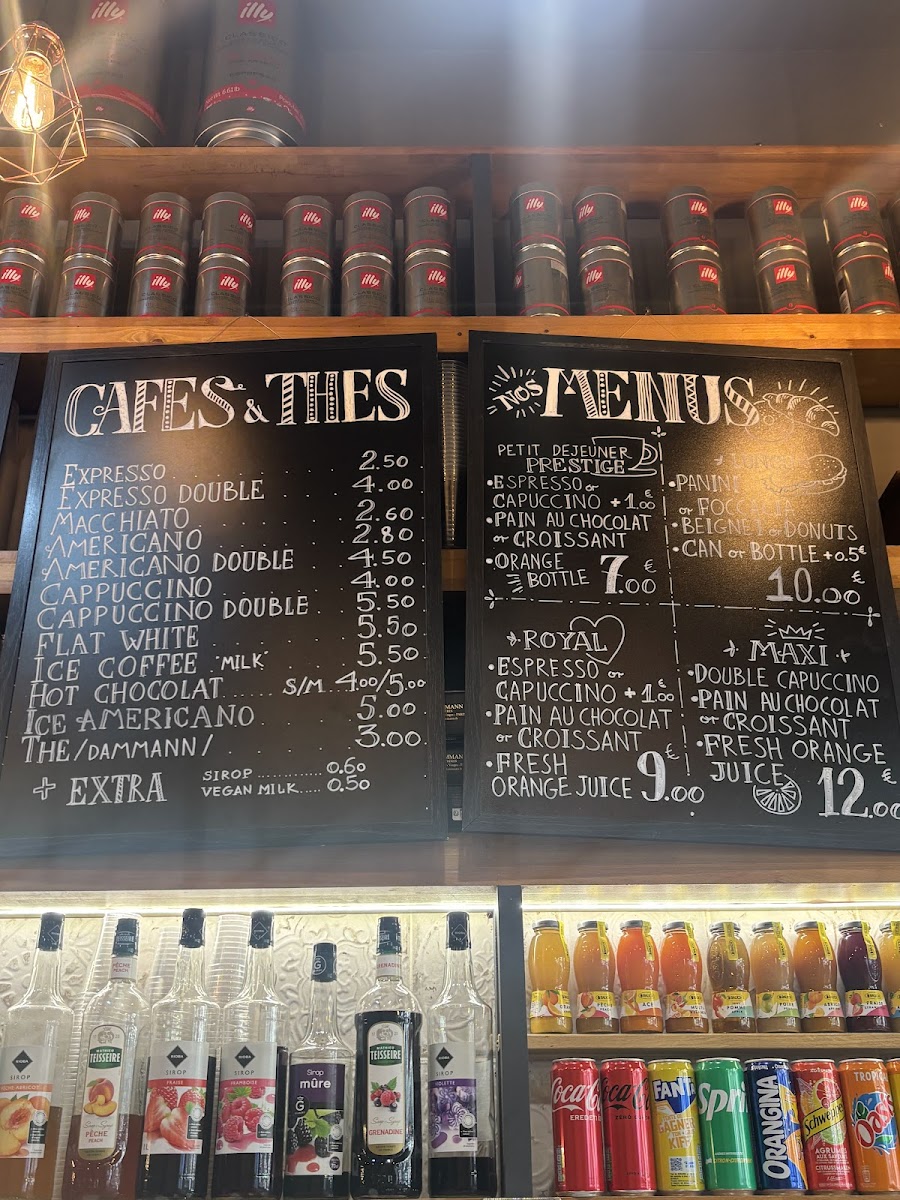 illy
illy
CLASSICO
illy illy illy illy illy illy illy illy illy illy illy illy
illy illy illy illy illy illy illy illy illy illy illy illy
CAFES & THES
EXPRESSO . . . . . . . 2.50
EXPRESSO DOUBLE . . . . 4.00
MACCHIATO . . . . . . . 2.60
AMERICANO . . . . . . . 2.80
AMERICANO DOUBLE . . . 4.50
CAPPUCCINO . . . . . . 4.00
CAPPUCCINO DOUBLE . . . 5.50
FLAT WHITE . . . . . . 5.50
ICE COFFEE "MILK" . . . 5.50
HOT CHOCOLAT ...... S/M 4.00/5.00
ICE AMERICANO . . . . . 5.00
THE/DAMMANN/ . . . . . 3.00
+ EXTRA
SIROP ............. 0.60
VEGAN MILK..... 0.50
NOS MENUS
PETIT DEJEUNER
PRESTIGE
•ESPRESSO or
CAPUCCINO +1.00€
•PAIN AU CHOCOLAT
or CROISSANT
•ORANGE
BOTTLE 7.00€
•PANINI
or
•BEIGNET or DONUTS
•CAN or BOTTLE +0.5€
10.00€
ROYAL
•ESPRESSO or
CAPUCCINO +1.00€
•PAIN AU CHOCOLAT
or CROISSANT
•FRESH
ORANGE JUICE 9.00€
MAXI
•DOUBLE CAPUCCINO
•PAIN AU CHOCOLAT
or CROISSANT
•FRESH ORANGE
JUICE 12.00€
SIROP
PÊCHE
MATHIEU
TEISSEIRE
PÊCHE
PEACH
SIROP
FRAISE
SIROP
FRAMBOISE
Sirop
mûre
MATHIEU
TEISSEIRE
GRENADINE
SIROP
VIOLETTE
ACE
Coca-Cola
Coca-Cola
FANTA
Sprite
ORANGINA
Schweppes
AGRUMES
TROPICAL
Oasis